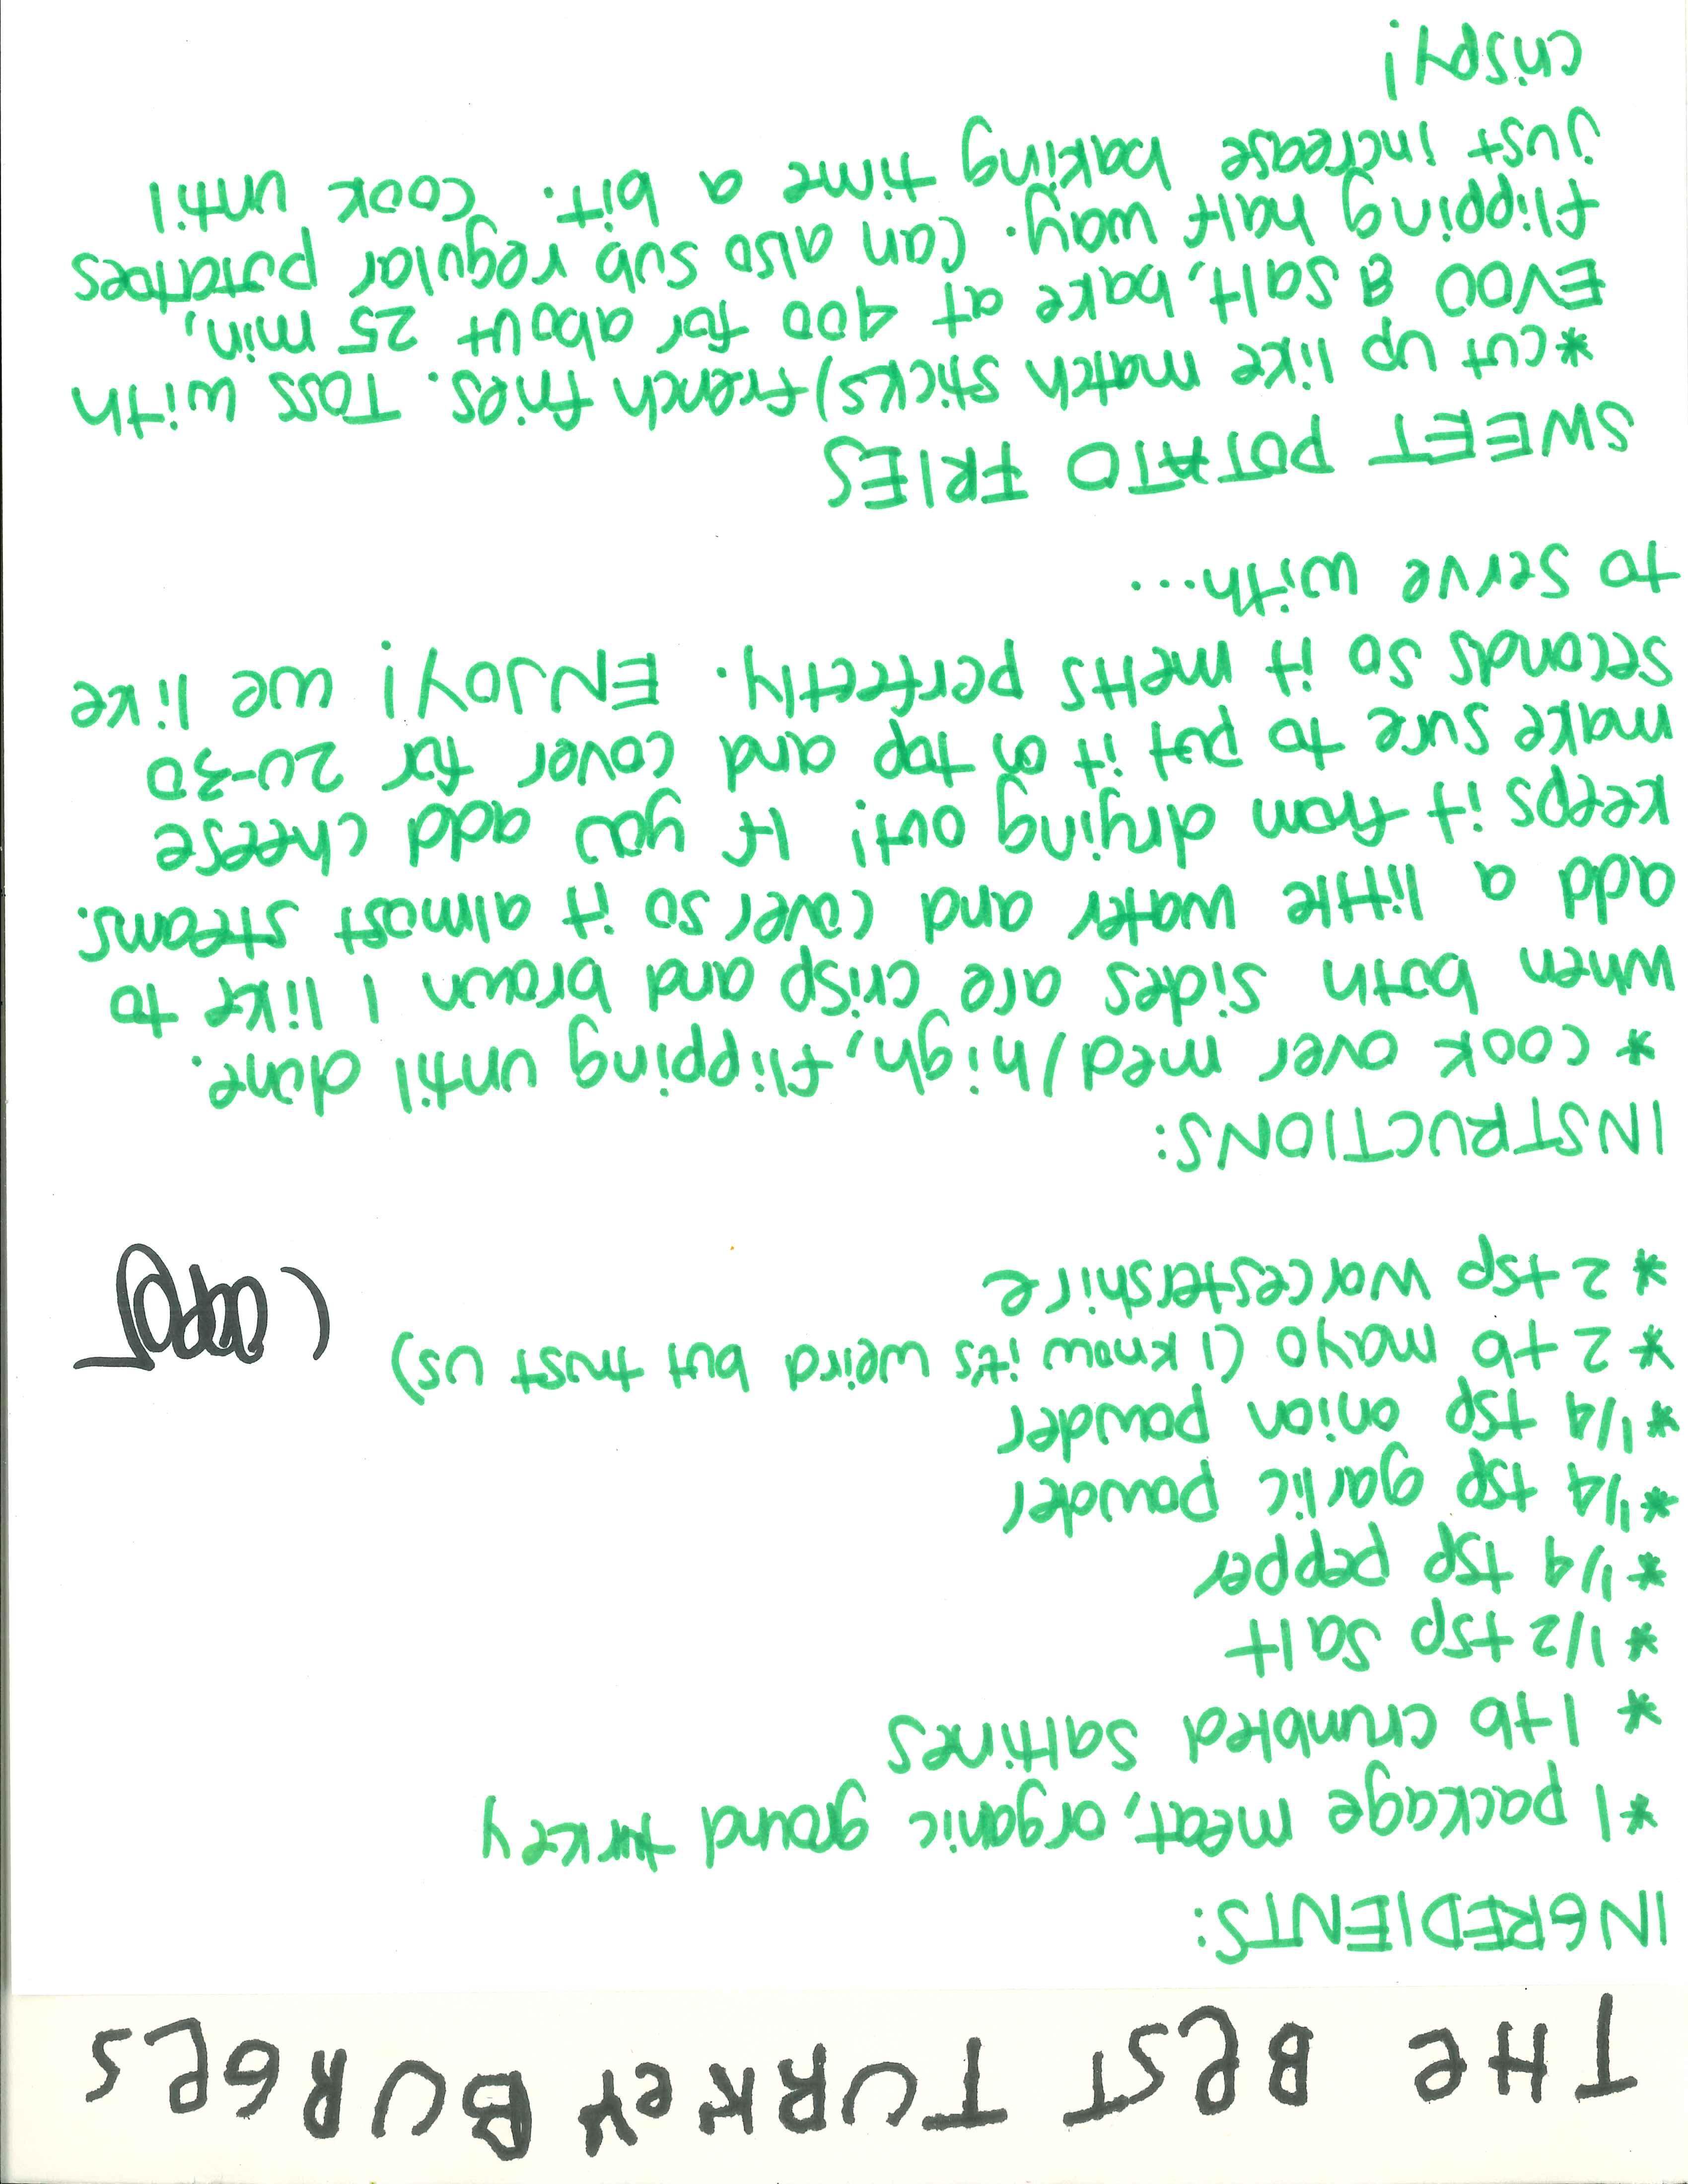 THe BesT TURKeY BURGeS
INGREDIENTS:
*1 package meat, organic ground turkey
* 1 tb crumbled saltines
* 1/2 tsp salt
* 1/4 tsp pepper
* 1/4 tsp garlic powder
* 1/4 tsp onion powder
* 2 tb mayo (I know it's weird but trust us)
* 2 tsp worcestershire
INSTRUCTIONS:
* cook over med/high, flipping until done.
when both sides are crisp and brown I like to
add a little water and cover so it almost steams.
keeps it from drying out! If you add cheese
make sure to put it on top and cover for 20-30
seconds so it melts perfectly. ENJOY! we like
to serve with...
SWEET POTATO FRIES
*cut up like match sticks)french fries. Toss with
EVOO & salt, bake at 400 for about 25 min,
flipping half way. Can also sub regular potatoes
just increase baking time a bit. Cook until
crispy!